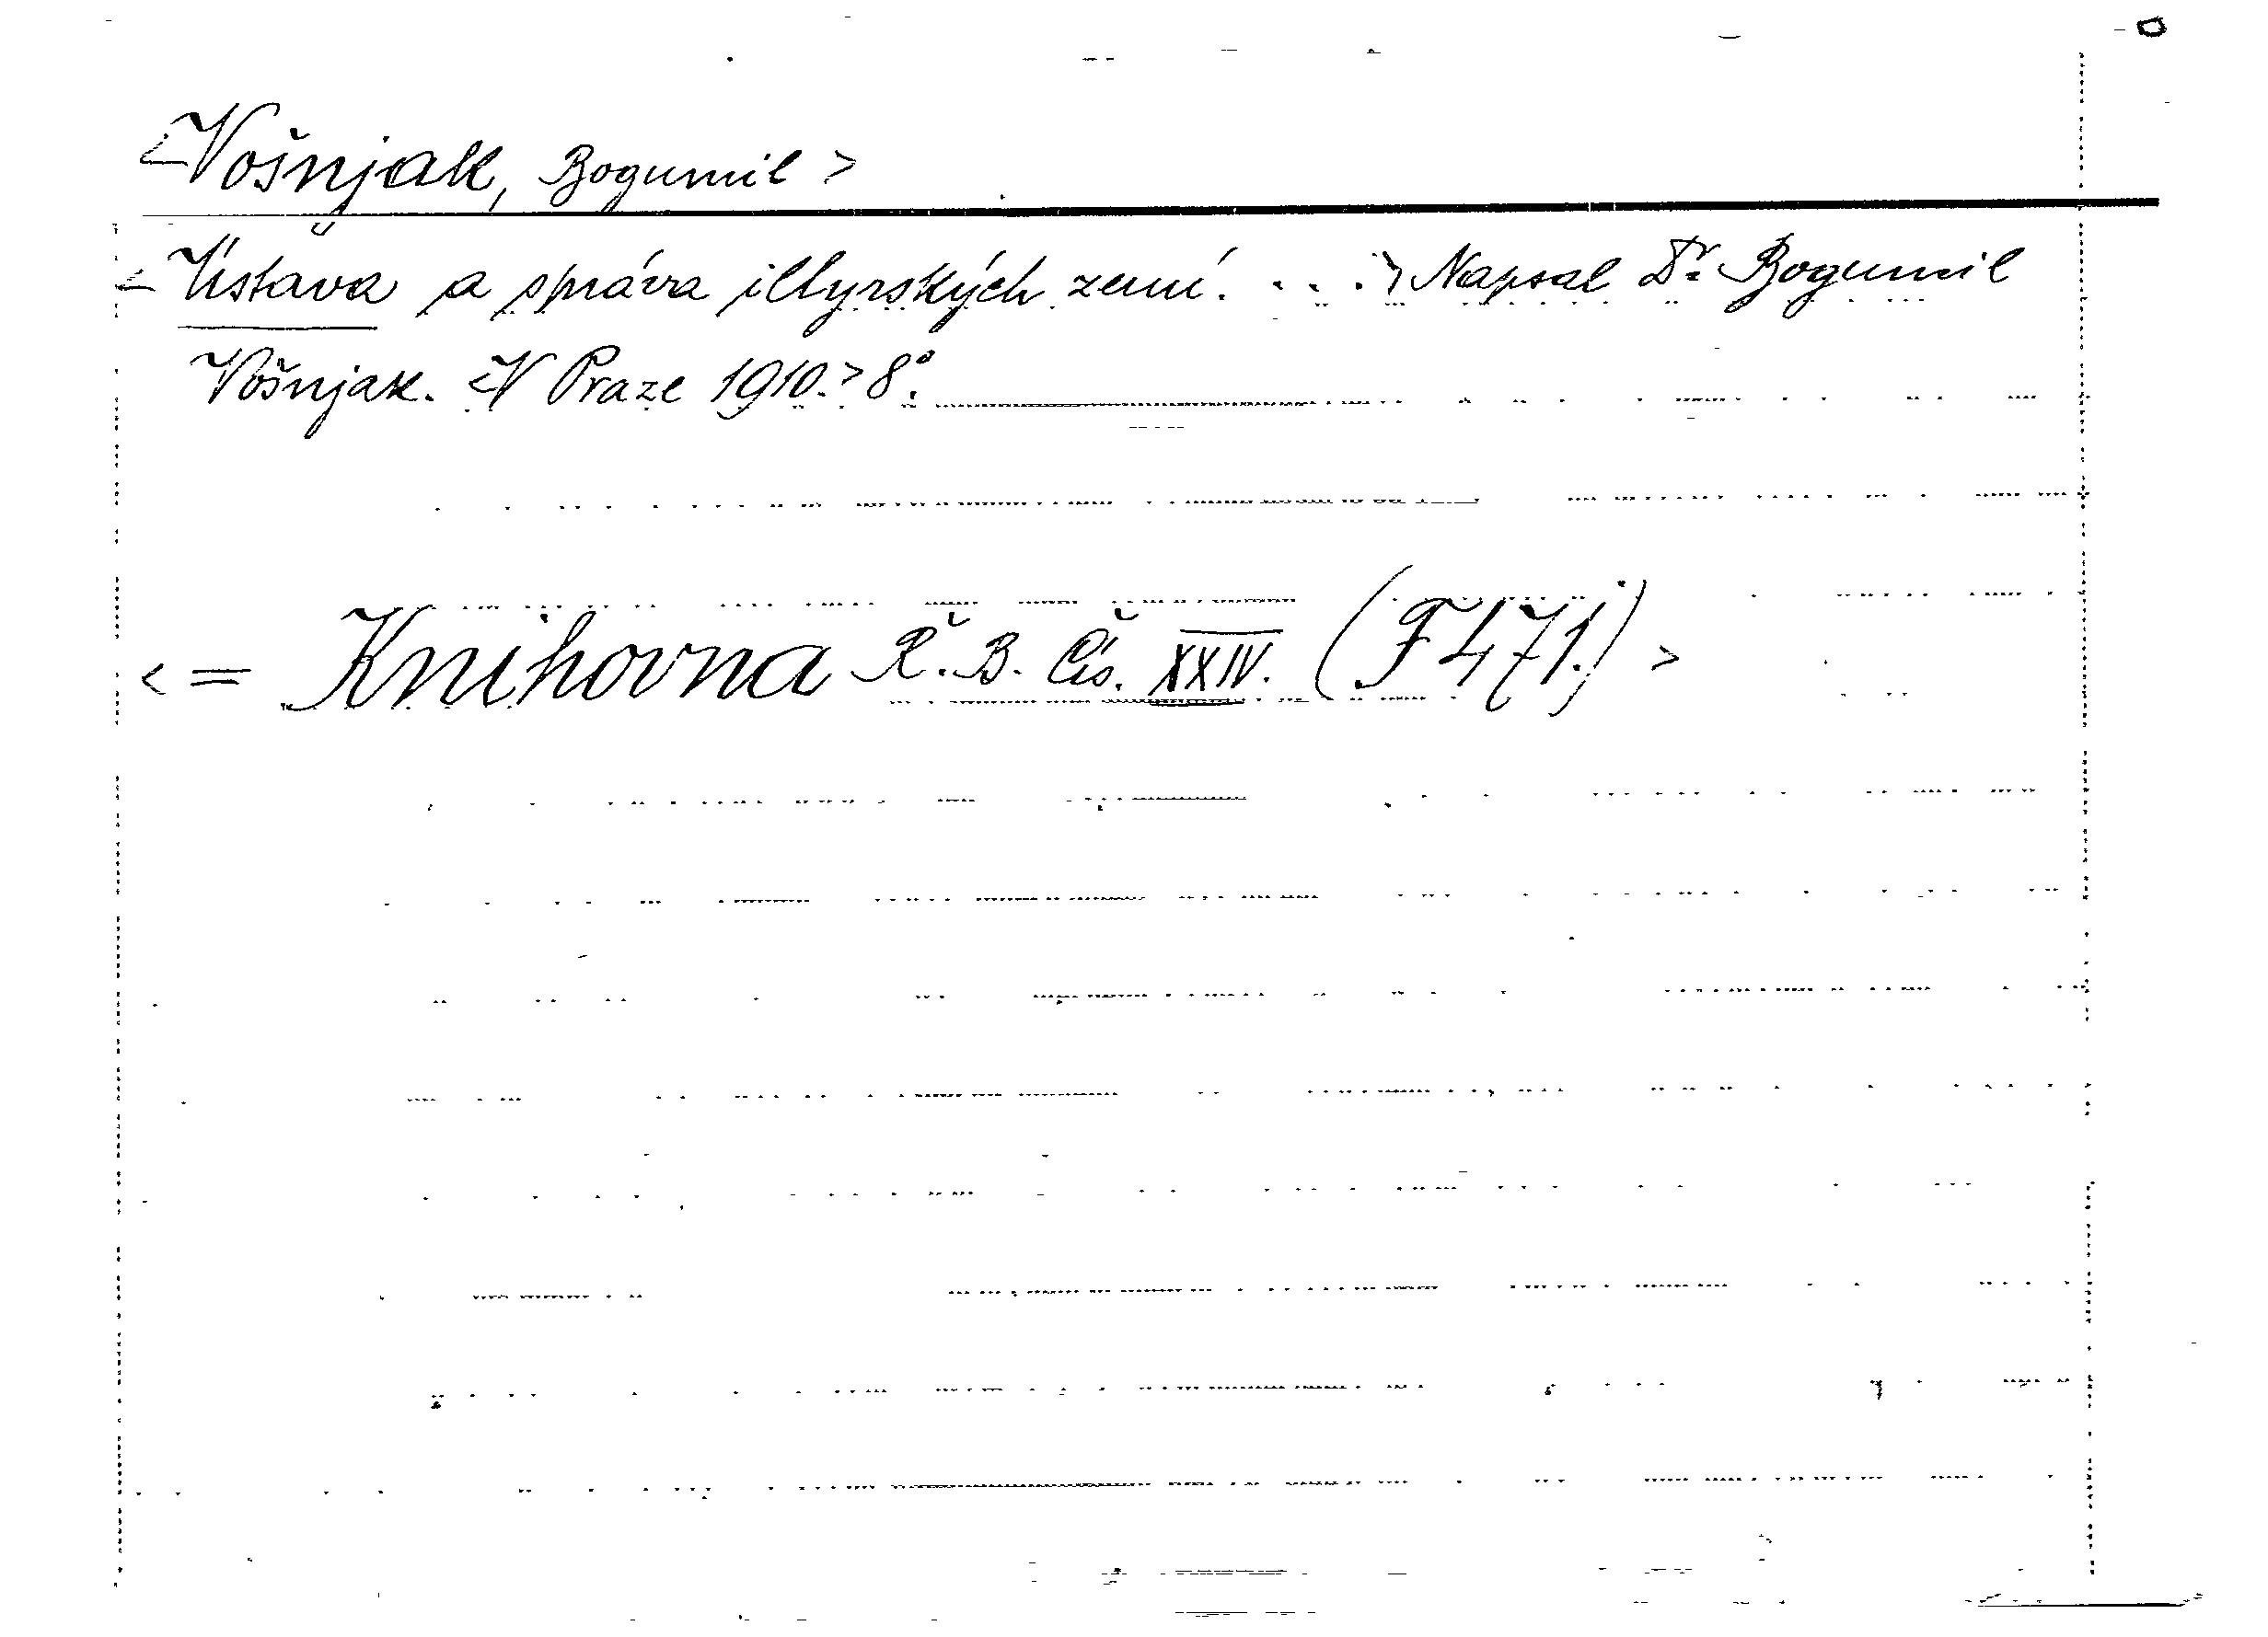 <Vošnjak, Bogumil>
- Ústava a správa illyrských zemí. . . . Napsal Dr. Bogumil
Vošnjak. <V Praze 1910.> 8°.
< = Knihovna Ř. B. Čís. XXIV. (F 471.) >